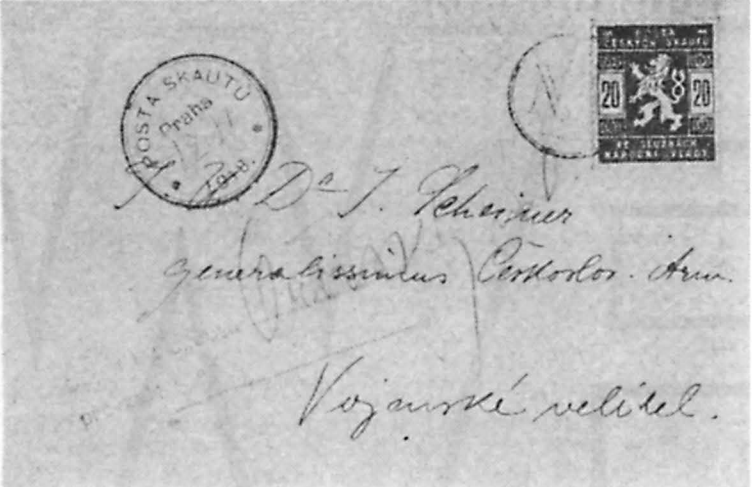 POŠTA SKAUTŮ
Praha
1918.
N
POŠTA
ČESKÝCH SKAUTŮ
20 20
VE SLUŽBÁCH
NÁRODNÍ VLÁDY
Dr J. Scheiner
generalissimus Českoslov. Arm.
Vojenské velitel.